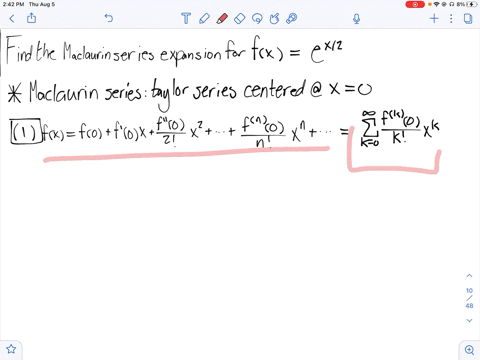 2:42 PM Thu Aug 5
8%
Find the Maclaurin series expansion for f(x) = e^(x/2)
* Maclaurin series: taylor series centered @ x=0
(1) f(x) = f(0) + f'(0)x + f''(0)/2! x^2 + ··· + f^(n)(0)/n! x^n + ··· = ∑_{k=0}^{∞} f^(k)(0)/k! x^k
10
/
48